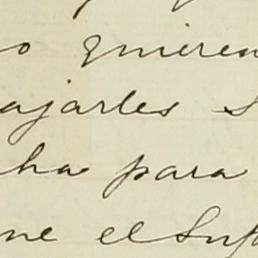 o quieren
ajarles s
ha para
ne el Sup